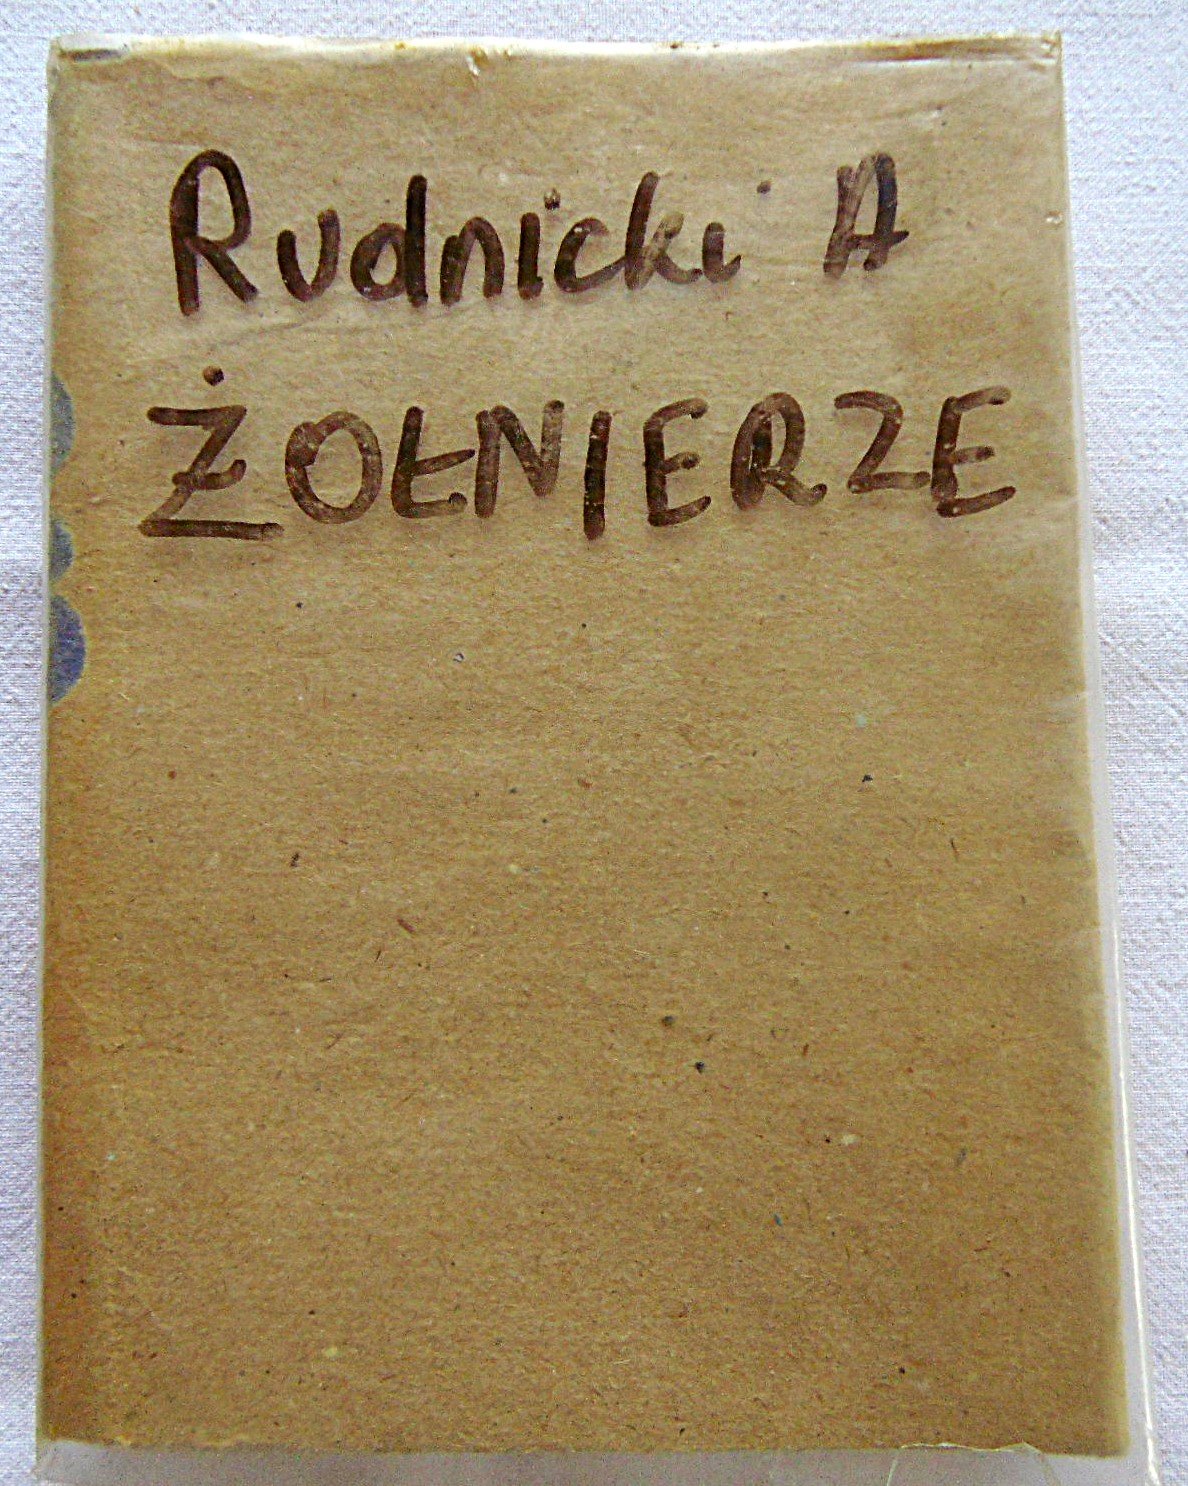 Rudnicki A
ŻOŁNIERZE